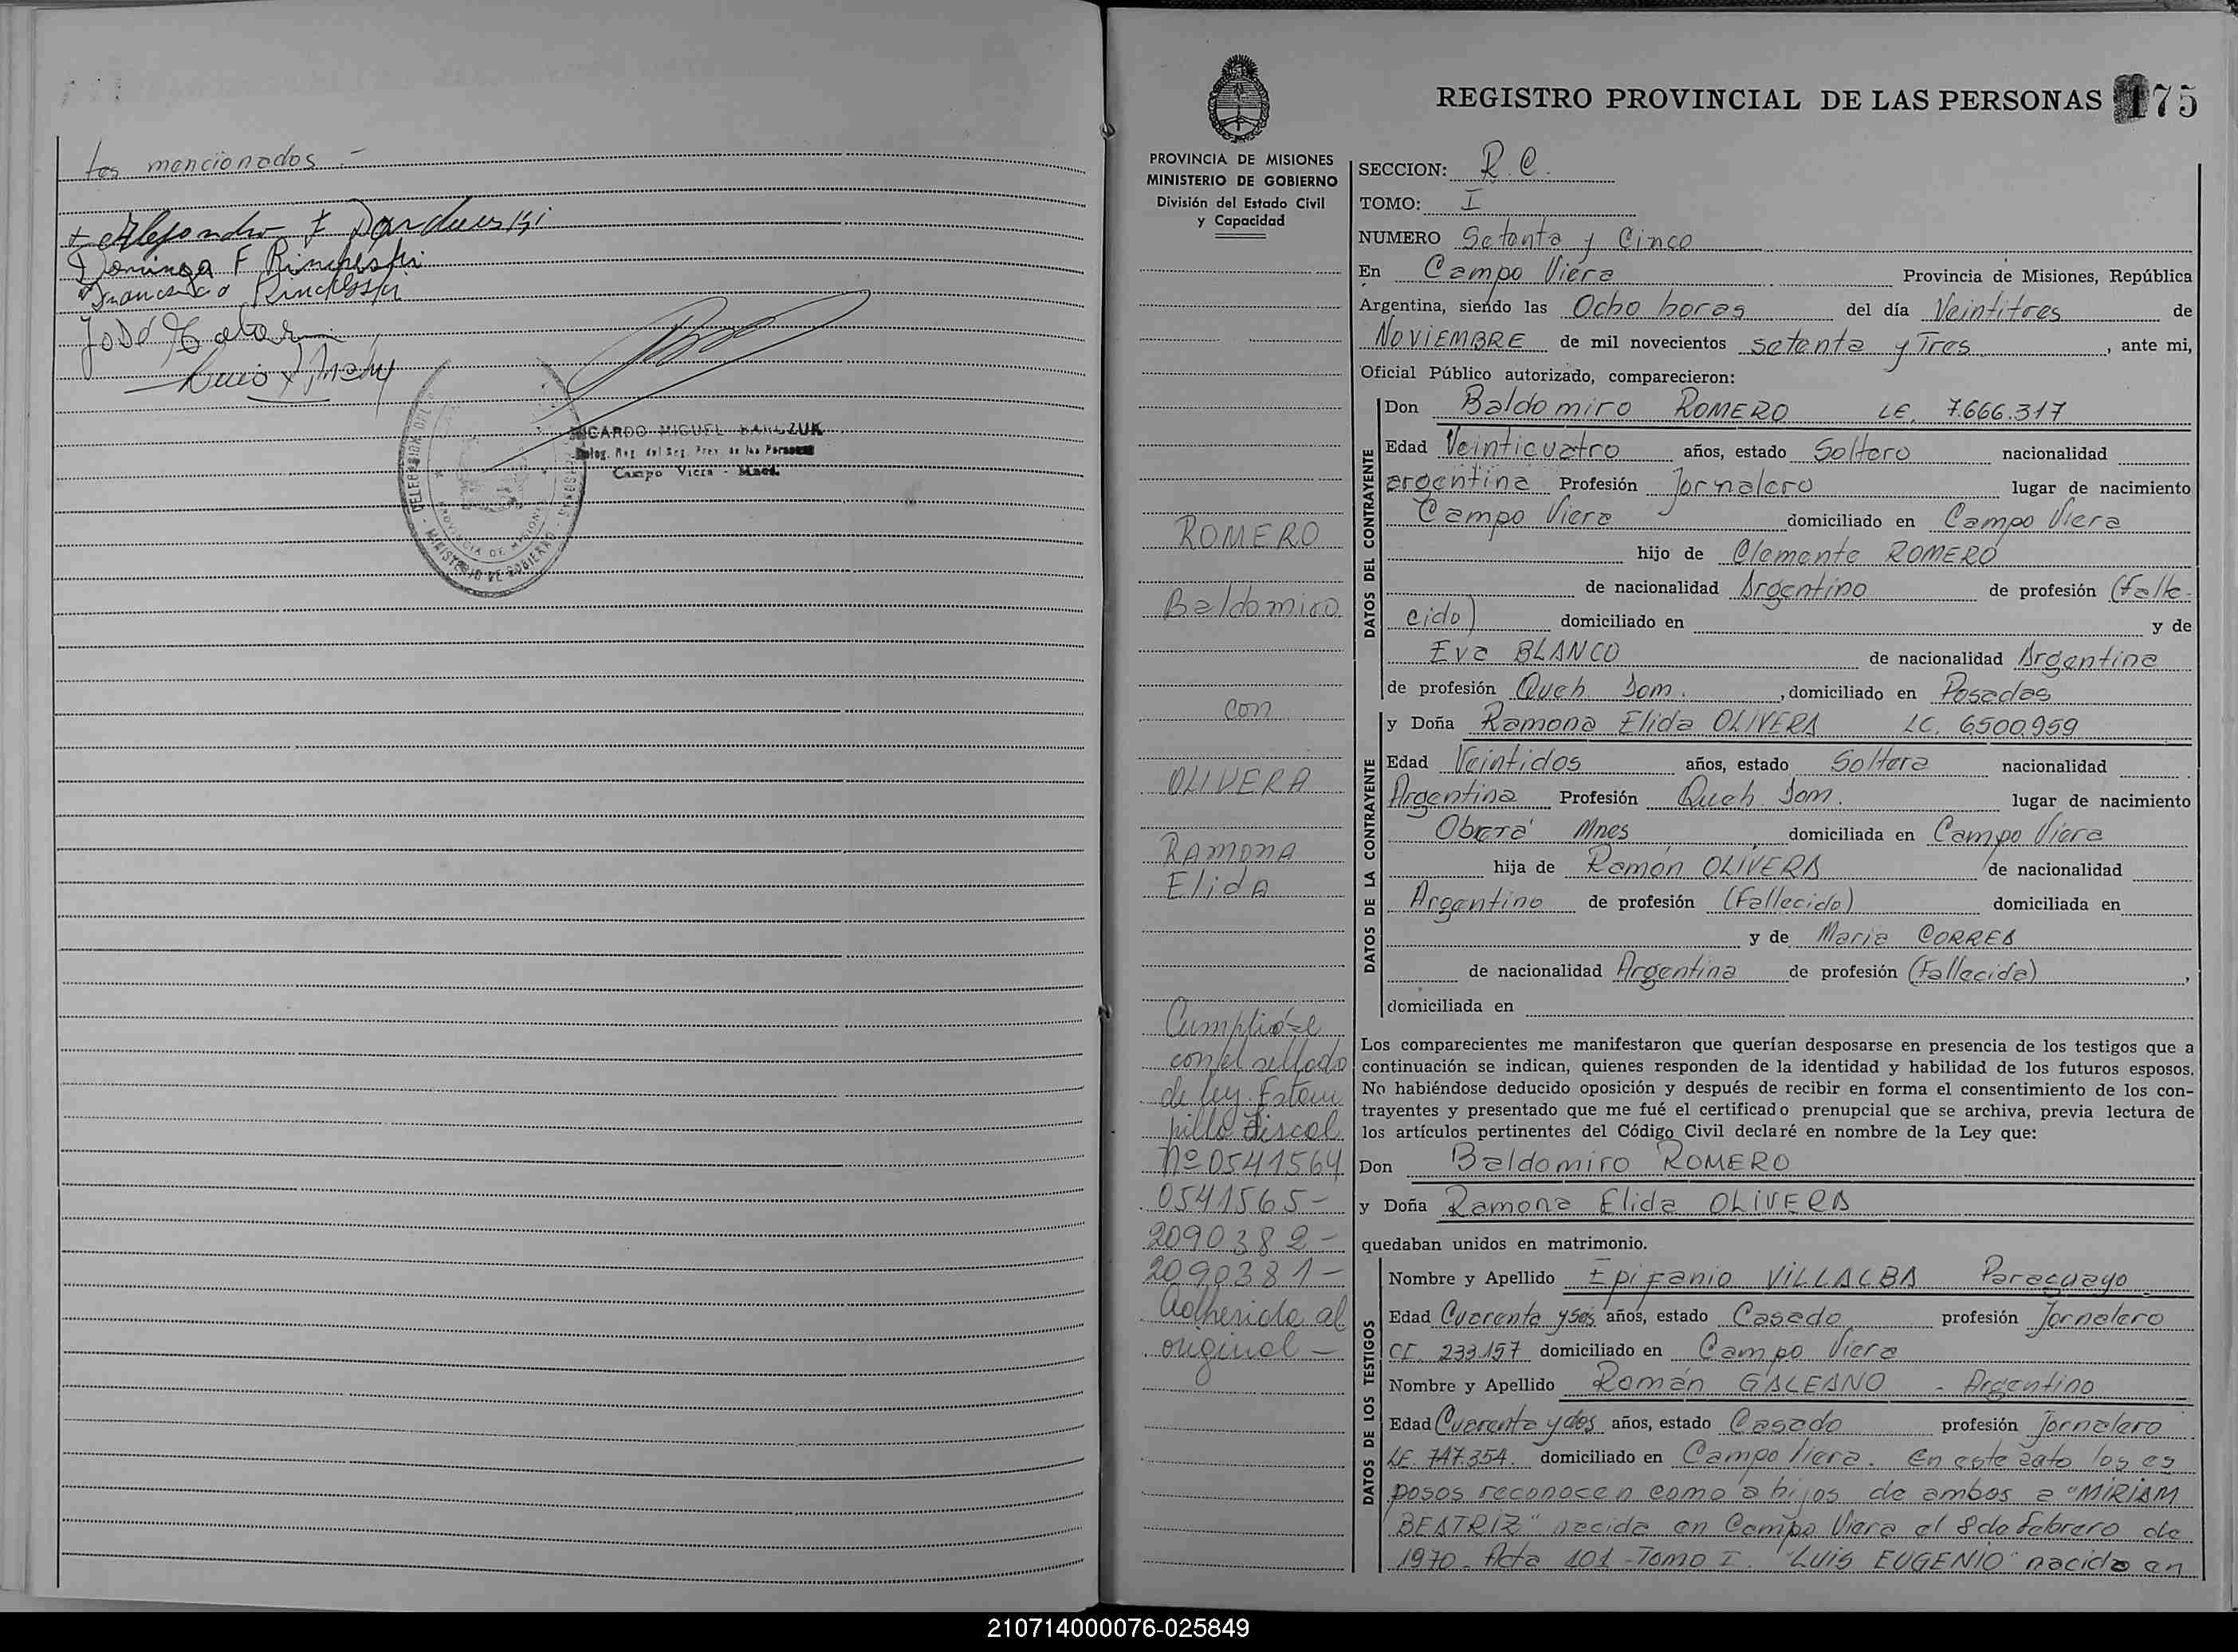 tes mencionados.-
Alejandro F
Dominga F
Francisco
José
RICARDO MIGUEL BARCZUK
Deleg. Reg. del Reg. Prov. de las Personas
Campo Viera - Mnes.
DELEGACION DEL
PROVINCIA DE MISIONES
MINISTERIO DE GOBIERNO
REGISTRO PROVINCIAL DE LAS PERSONAS 175
PROVINCIA DE MISIONES
MINISTERIO DE GOBIERNO
División del Estado Civil
y Capacidad
ROMERO
Baldomiro
con
OLIVERA
RAMONA
Elida
Cumplióse
con el sellado
de ley. Estam
pilla Fiscal
Nº 0541564
0541565-
2090382-
2090381-
Adherida al
original-
SECCION: R.C.
TOMO: I
NUMERO Setenta y Cinco
En Campo Viera Provincia de Misiones, República
Argentina, siendo las Ocho horas del día Veintitres de
NOVIEMBRE de mil novecientos setenta y Tres, ante mi,
Oficial Público autorizado, comparecieron:
DATOS DEL CONTRAYENTE
Don Baldomiro ROMERO LE. 7.666.317
Edad Veinticuatro años, estado Soltero nacionalidad
argentina Profesión Jornalero lugar de nacimiento
Campo Viera domiciliado en Campo Viera
hijo de Clemente ROMERO
de nacionalidad Argentino de profesión (Falle-
cido) domiciliado en y de
Eva BLANCO de nacionalidad Argentina
de profesión Queh. Dom. , domiciliado en Posadas
DATOS DE LA CONTRAYENTE
y Doña Ramona Elida OLIVERA LC. 6.500.959
Edad Veintidos años, estado Soltera nacionalidad
Argentina Profesión Queh. Dom. lugar de nacimiento
Oberá Mnes domiciliada en Campo Viera
hija de Ramón OLIVERA de nacionalidad
Argentino de profesión (Fallecido) domiciliada en
y de Maria CORREA
de nacionalidad Argentina de profesión (Fallecida) ,
domiciliada en
Los comparecientes me manifestaron que querían desposarse en presencia de los testigos que a
continuación se indican, quienes responden de la identidad y habilidad de los futuros esposos.
No habiéndose deducido oposición y después de recibir en forma el consentimiento de los con-
trayentes y presentado que me fué el certificado prenupcial que se archiva, previa lectura de
los artículos pertinentes del Código Civil declaré en nombre de la Ley que:
Don Baldomiro ROMERO
y Doña Ramona Elida OLIVERA
quedaban unidos en matrimonio.
DATOS DE LOS TESTIGOS
Nombre y Apellido Epifanio VILLALBA Paraguayo
Edad Cuarenta y seis años, estado Casado profesión Jornalero
CI. 233.157 domiciliado en Campo Viera
Nombre y Apellido Román GALEANO - Argentino
Edad Cuarenta y dos años, estado Casado profesión Jornalero
LE. 747.354. domiciliado en Campo Viera. En este acto los es
posos reconocen como a hijos de ambos a "MIRIAM
BEATRIZ" nacida en Campo Viera el 8 de febrero de
1970- Acta 101 - Tomo I. "LUIS EUGENIO" nacido en
210714000076-025849